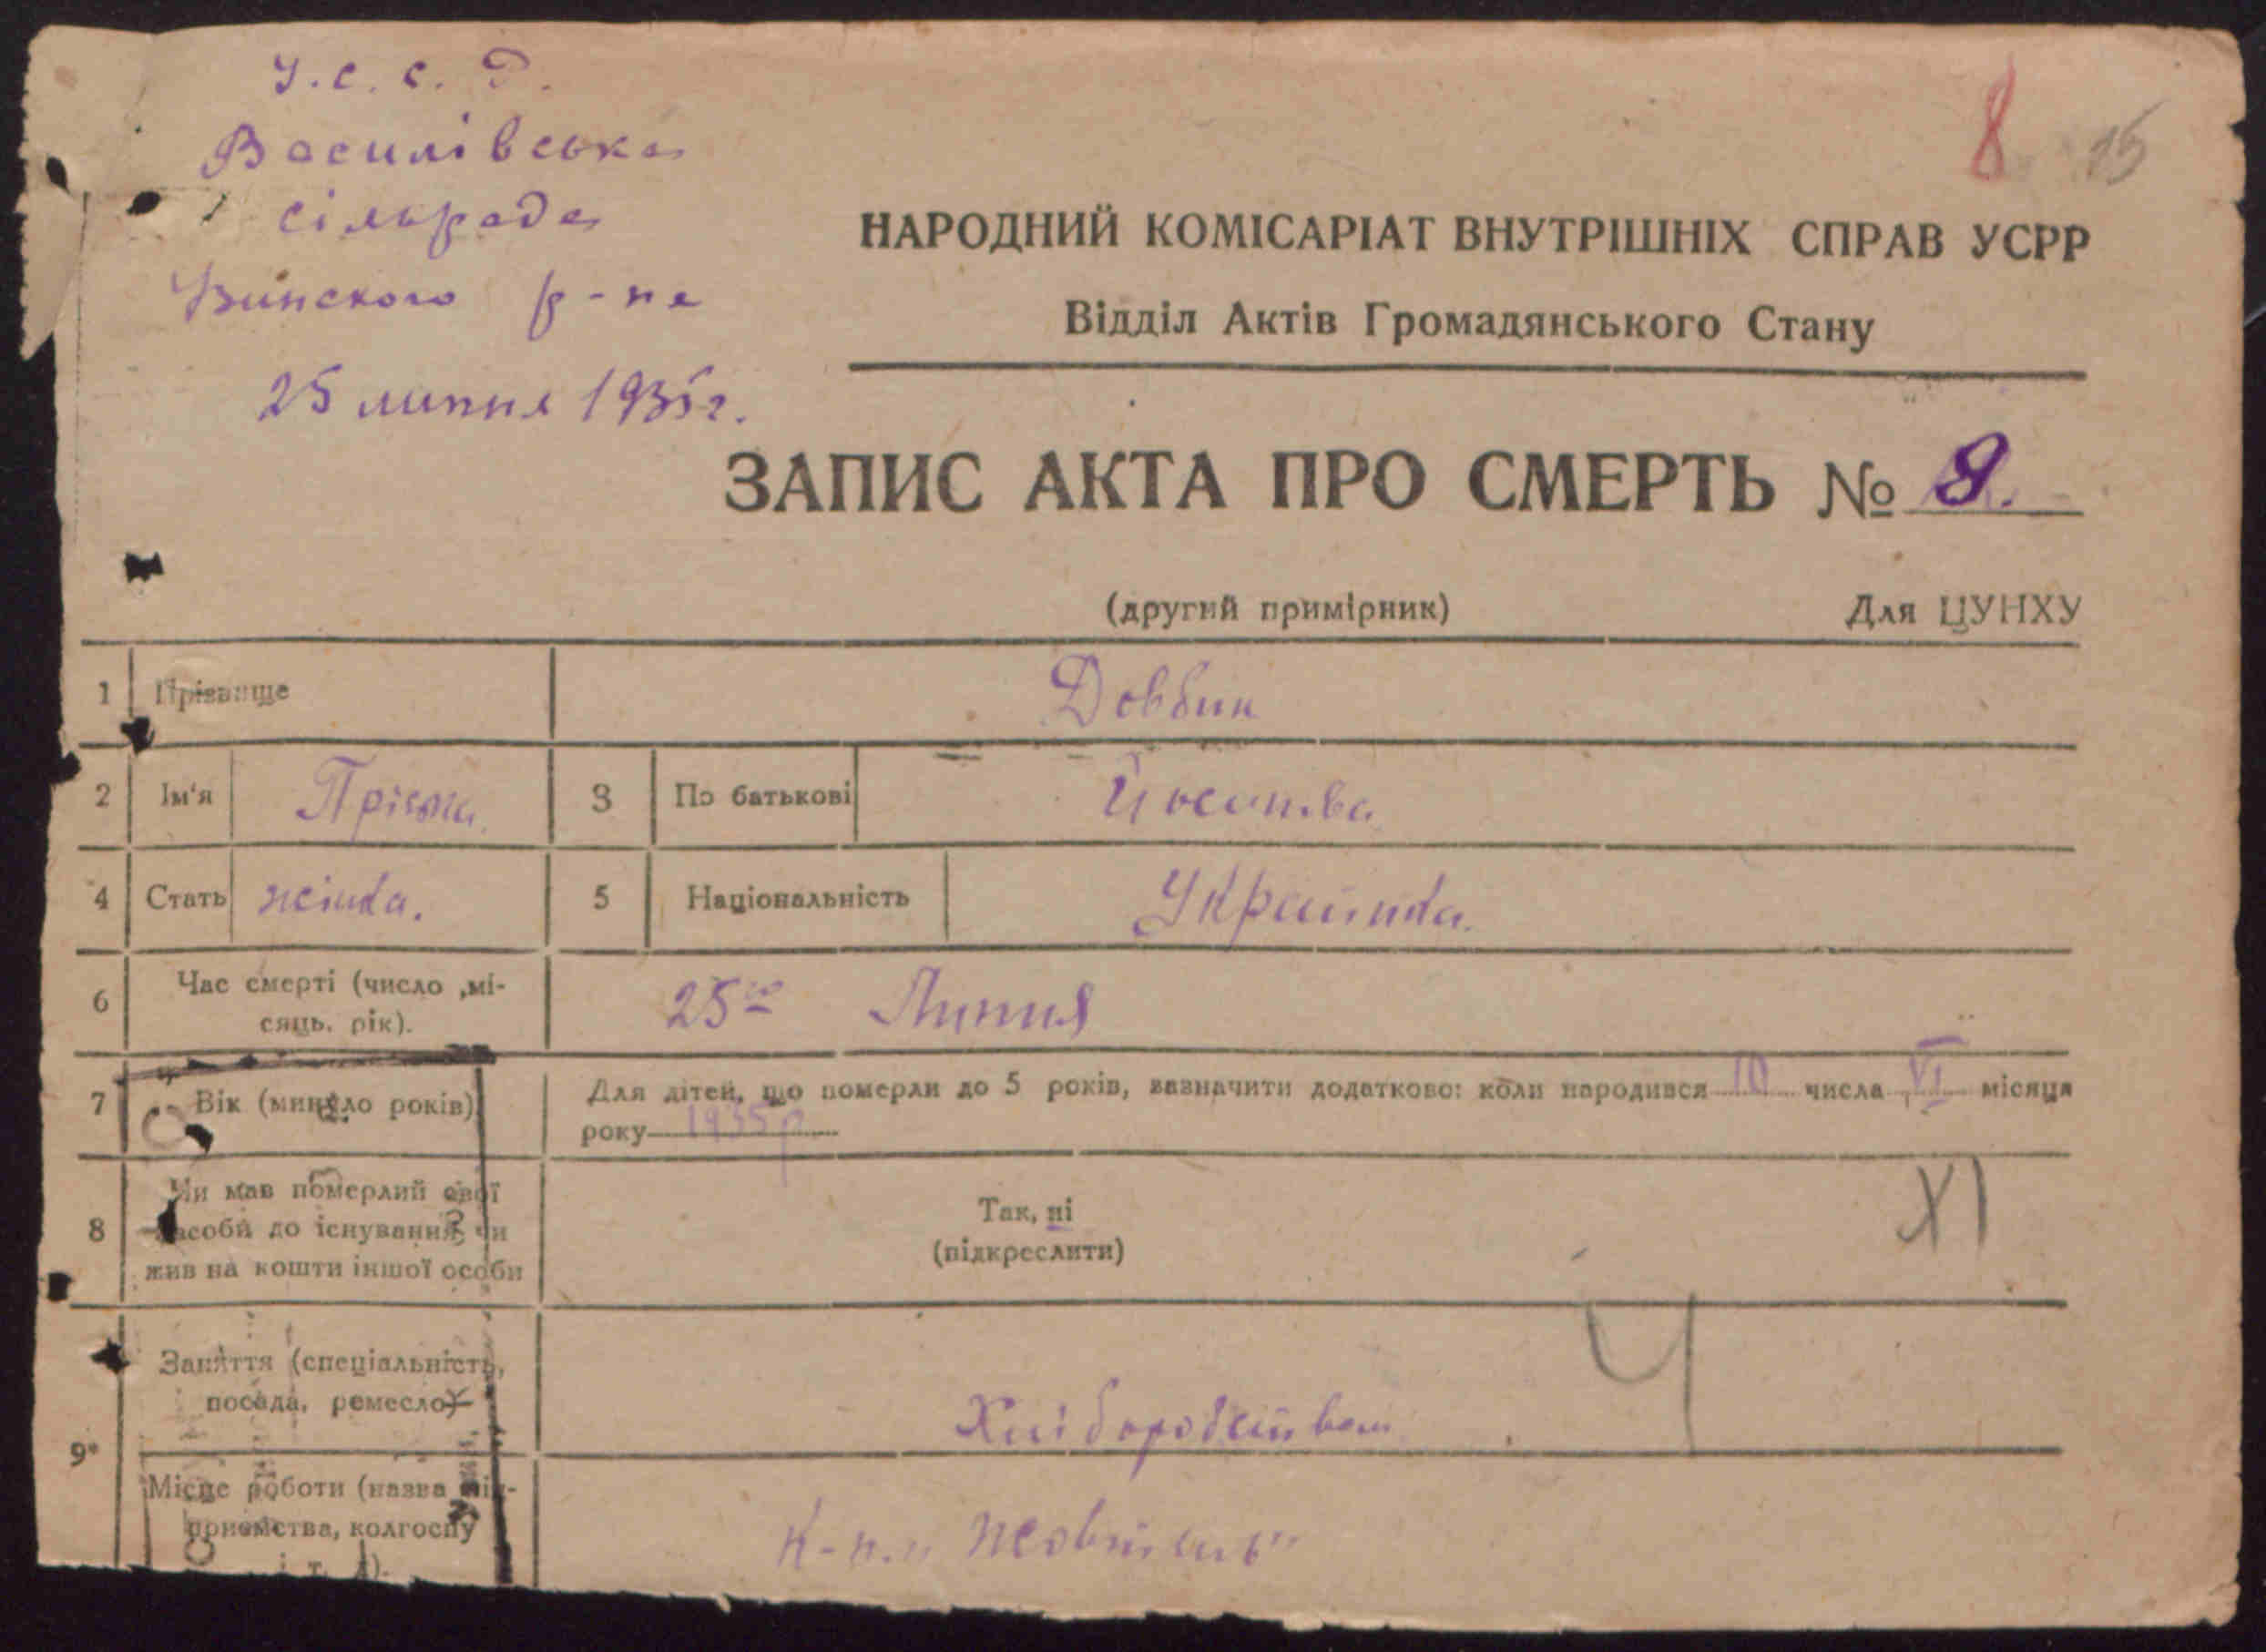 У.С.С.Р.
Василівська
сільрада
р-на
25 липня 1935 г.
8 15
НАРОДНИЙ КОМІСАРІАТ ВНУТРІШНІХ СПРАВ УСРР
Відділ Актів Громадянського Стану
ЗАПИС АКТА ПРО СМЕРТЬ № 8.
(другий примірник) Для ЦУНХУ
1 Прізвище Довбин
2 Ім'я 3 По батькові
4 Стать жінка. 5 Національність Українка.
6 Час смерті (число ,мі-
сяць, рік). 25го Липня
7 Вік (минуло років) Для дітей, що померли до 5 років, зазначити додатково: коли народився 10 числа VI місяця
року 1935 р
8 Чи мав померлий свої
засоби до існування, чи
жив на кошти іншої особи
Так, ні
(підкреслити)
XI
9* Заняття (спеціальність,
посада, ремесло)
Хліборобством
Ч
Місце роботи (назва під-
приємства, колгоспу
і т. д).
К-п. „Жовтень"